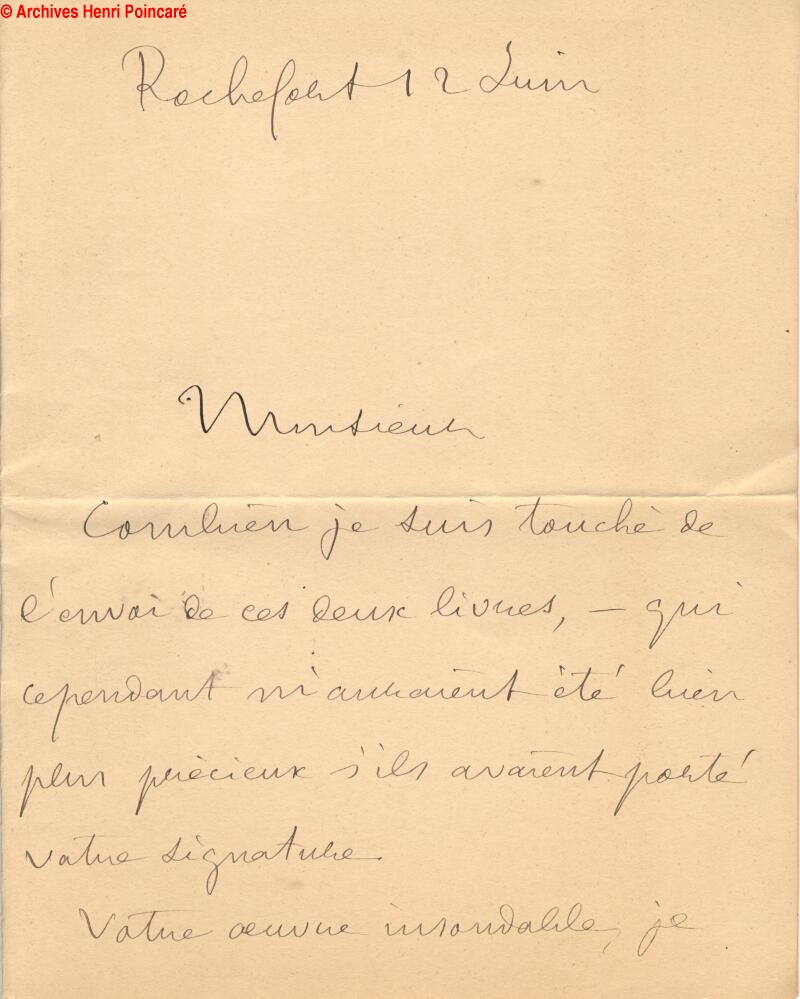 © Archives Henri Poincaré
Rochefort 12 Juin
Monsieur
Combien je suis touché de
l'envoi de ces deux livres, – qui
cependant m'auraient été bien
plus précieux s'ils avaient porté
votre signature.
Votre œuvre insondable, je